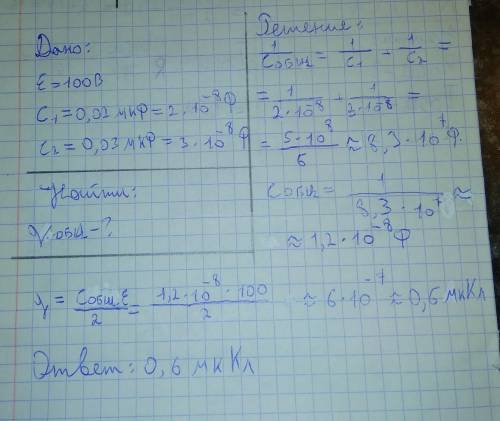 Дано:
Ɛ = 100В
C₁ = 0,02 мкФ = 2 · 10⁻⁸ Ф
C₂ = 0,03 мкФ = 3 · 10⁻⁸ Ф
Найти:
q общ - ?
Решение:
1/Cобщ = 1/C₁ + 1/C₂ =
= 1/2·10⁻⁸ + 1/3·10⁻⁸ =
= 5·10⁸/6 ≈ 8,3 · 10⁷ Ф.
Cобщ = 1/8,3 · 10⁷ ≈
≈ 1,2 · 10⁻⁸ Ф
q = Cобщ.Ɛ/2 = 1,2 · 10⁻⁸ · 100/2 ≈ 6 · 10⁻⁷ ≈ 0,6 мкКл
Ответ: 0,6 мкКл